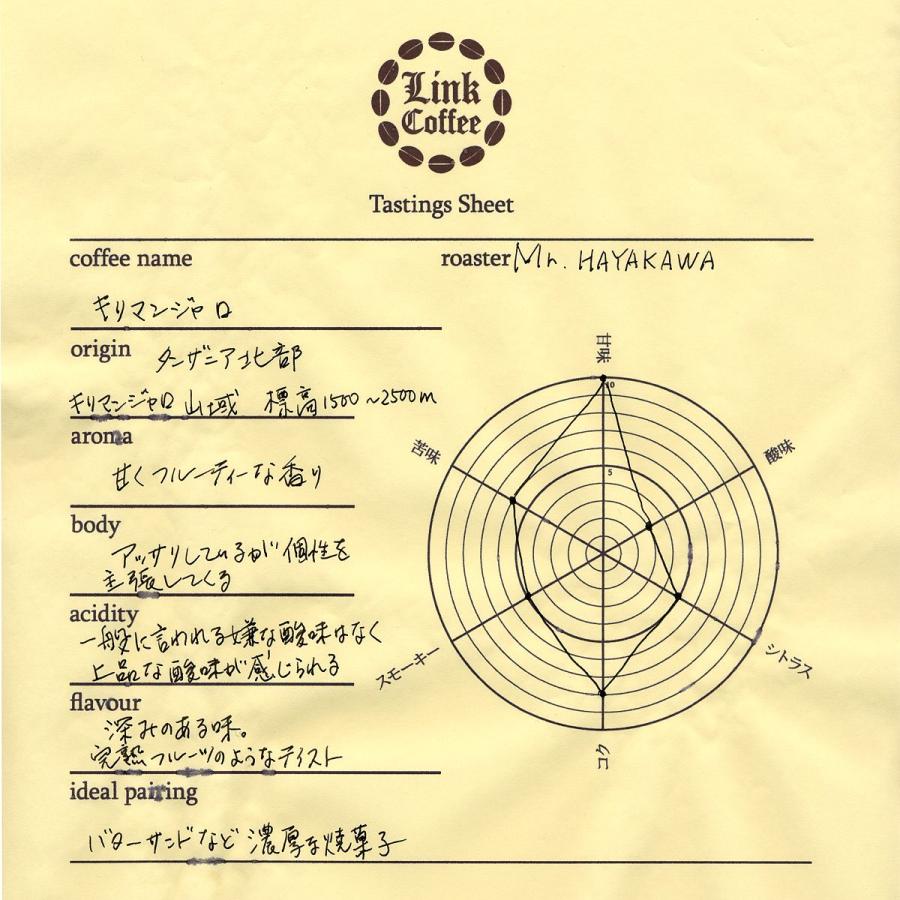 Link
Coffee
Tastings Sheet
coffee name
roaster Mr. HAYAKAWA
キリマンジャロ
origin タンザニア北部
キリマンジャロ山域 標高1500~2500m
aroma
甘くフルーティーな香り
body
アッサリしているが個性を
主張してくる
acidity
一般に言われる嫌な酸味はなく
上品な酸味が感じられる
flavour
深みのある味。
完熟フルーツのようなテイスト
ideal pairing
バターサンドなど濃厚な焼菓子
甘味
10
苦味
酸味
5
スモーキー
シトラス
コク